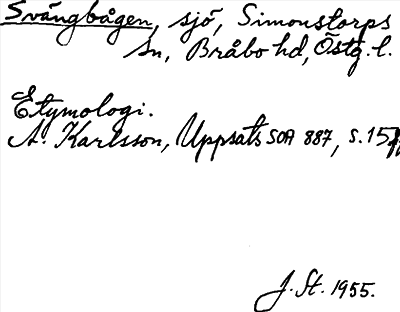 Svängbågen, sjö, Simonstorps
sn, Bråbo hd, Östg. l.
Etymologi.
A. Karlsson, Uppsats SOA 887, s. 15
J. St. 1955.